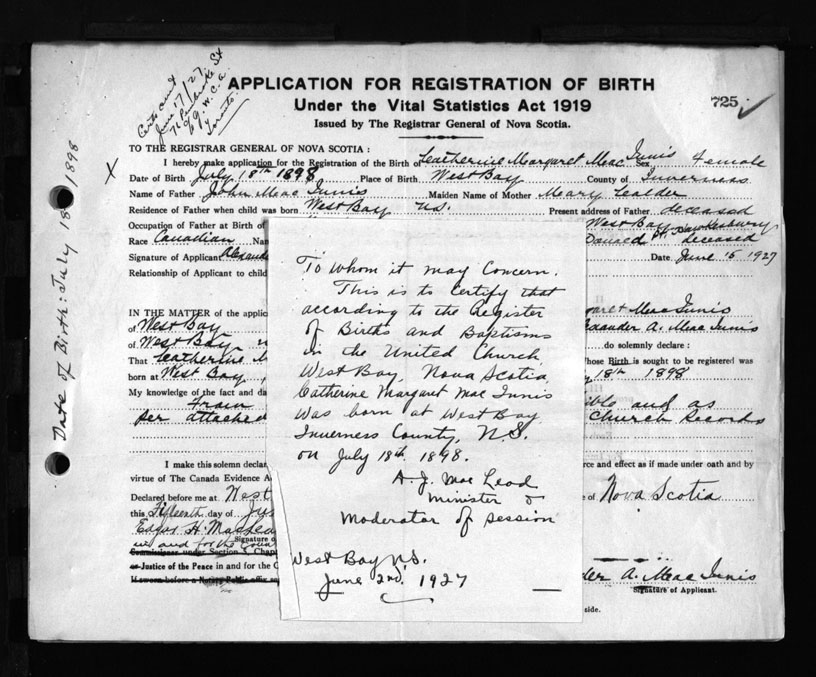 Date of Birth: July 18 1898
Certs and
June 17/27
76 Pembroke St
Y.W.C.A.
Toronto.
APPLICATION FOR REGISTRATION OF BIRTH
Under the Vital Statistics Act 1919
Issued by The Registrar General of Nova Scotia.
725 ✓
TO THE REGISTRAR GENERAL OF NOVA SCOTIA :
X
I hereby make application for the Registration of the Birth of Catherine Margaret Mac Innis Sex Female
Date of Birth July 18th 1898 Place of Birth West Bay County of Inverness
Name of Father John Mac Innis Maiden Name of Mother Mary Calder
Residence of Father when child was born West Bay N.S. Present address of Father deceased
Occupation of Father at Birth of West Bay Hawkesbury
Race Canadian Nam Donald deceased
Signature of Applicant Alexand Date June 15 1927
Relationship of Applicant to child
IN THE MATTER of the applic garet Mac Innis
of West Bay exander A. Mac Innis
of West Bay, do solemnly declare :
That Catherine M Whose Birth is sought to be registered was
born at West Bay, 18th 1898
My knowledge of the fact and da
from ible and as
per attached Church Records
I make this solemn declar rce and effect as if made under oath and by
virtue of The Canada Evidence A
Declared before me at West e of Nova Scotia
this Fifteenth day of Jun
Edgar H. MacLeod
Signature o
in and for the Coun
Commissioner under Section Chap
or Justice of the Peace in and for the C
If sworn before a Notary Public affix
der A. Mac Innis
Signature of Applicant.
side.
To whom it may Concern.
This is to Certify that
according to the Register
of Births and Baptisms
in the United Church
West Bay, Nova Scotia
Catherine Margaret Mac Innis
was born at West Bay
Inverness County, N.S.
on July 18th. 1898.
A. J. Mac Leod
Minister &
Moderator of Session
West Bay N.S.
June 2nd. 1927